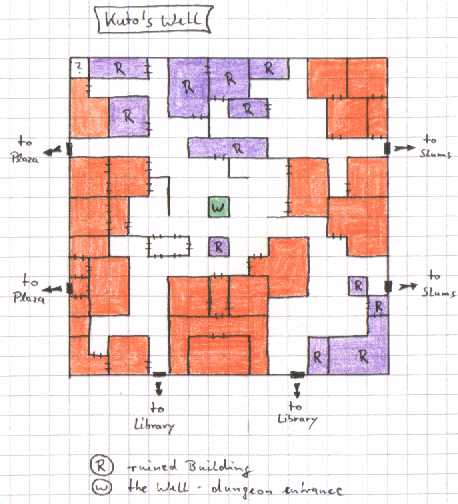 Kuto's Well
?
R
R
R
R
R
R
R
to
Plaza
to
Slums
R
W
R
to
Plaza
to
Slums
R
R
R
R
to
Library
to
Library
R ruined Building
W the Well - dungeon entrance